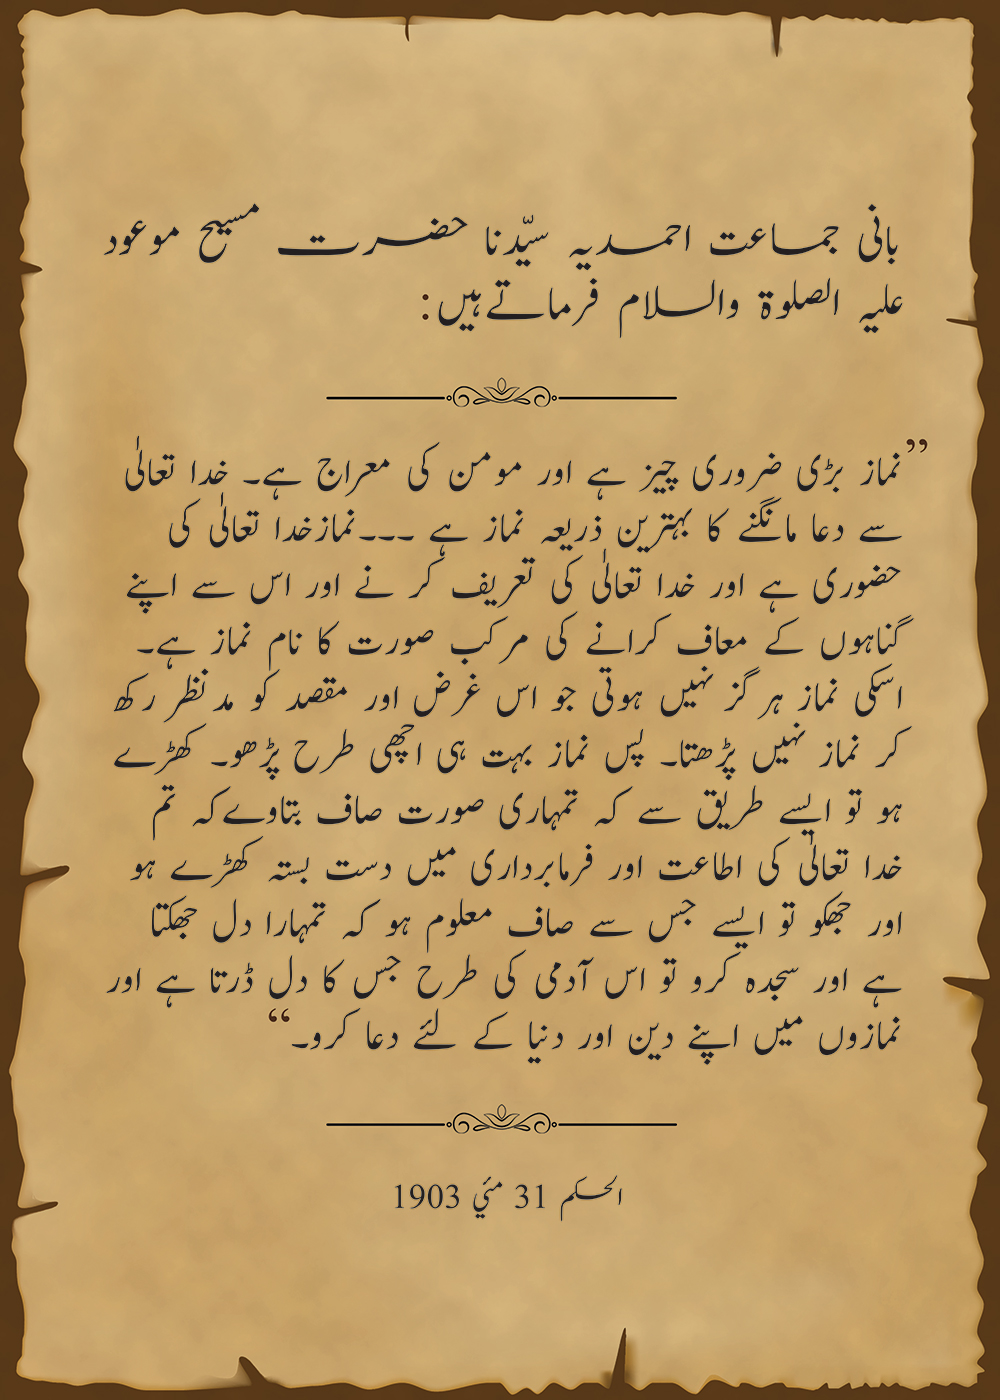 بانی جماعت احمدیہ سیّدنا حضرت مسیح موعود
علیہ الصلوۃ والسلام فرماتے ہیں:
’’نماز بڑی ضروری چیز ہے اور مومن کی معراج ہے۔ خدا تعالیٰ
سے دعا مانگنے کا بہترین ذریعہ نماز ہے ۔۔۔نمازخدا تعالیٰ کی
حضوری ہے اور خدا تعالیٰ کی تعریف کر نے اور اس سے اپنے
گناہوں کے معاف کرانے کی مرکب صورت کا نام نماز ہے۔
اسکی نماز ہر گز نہیں ہوتی جو اس غرض اور مقصد کو مدنظر رکھ
کر نماز نہیں پڑھتا۔ پس نماز بہت ہی اچھی طرح پڑھو۔ کھڑے
ہو تو ایسے طریق سے کہ تمہاری صورت صاف بتاوےکہ تم
خدا تعالیٰ کی اطاعت اور فرمابرداری میں دست بستہ کھڑے ہو
اور جھکو تو ایسے جس سے صاف معلوم ہو کہ تمہارا دل جھکتا
ہے اور سجدہ کرو تو اس آدمی کی طرح جس کا دل ڈرتا ہے اور
نمازوں میں اپنے دین اور دنیا کے لئے دعا کرو۔‘‘
الحکم 31 مئي 1903